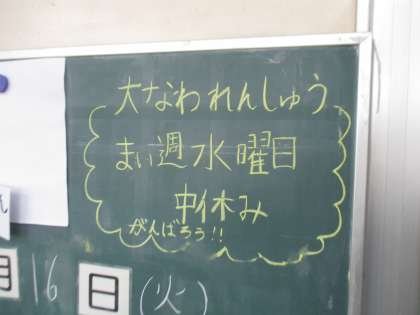 大なわれんしゅう
まい週水曜日
中休み
がんばろう!!
月16日(火)